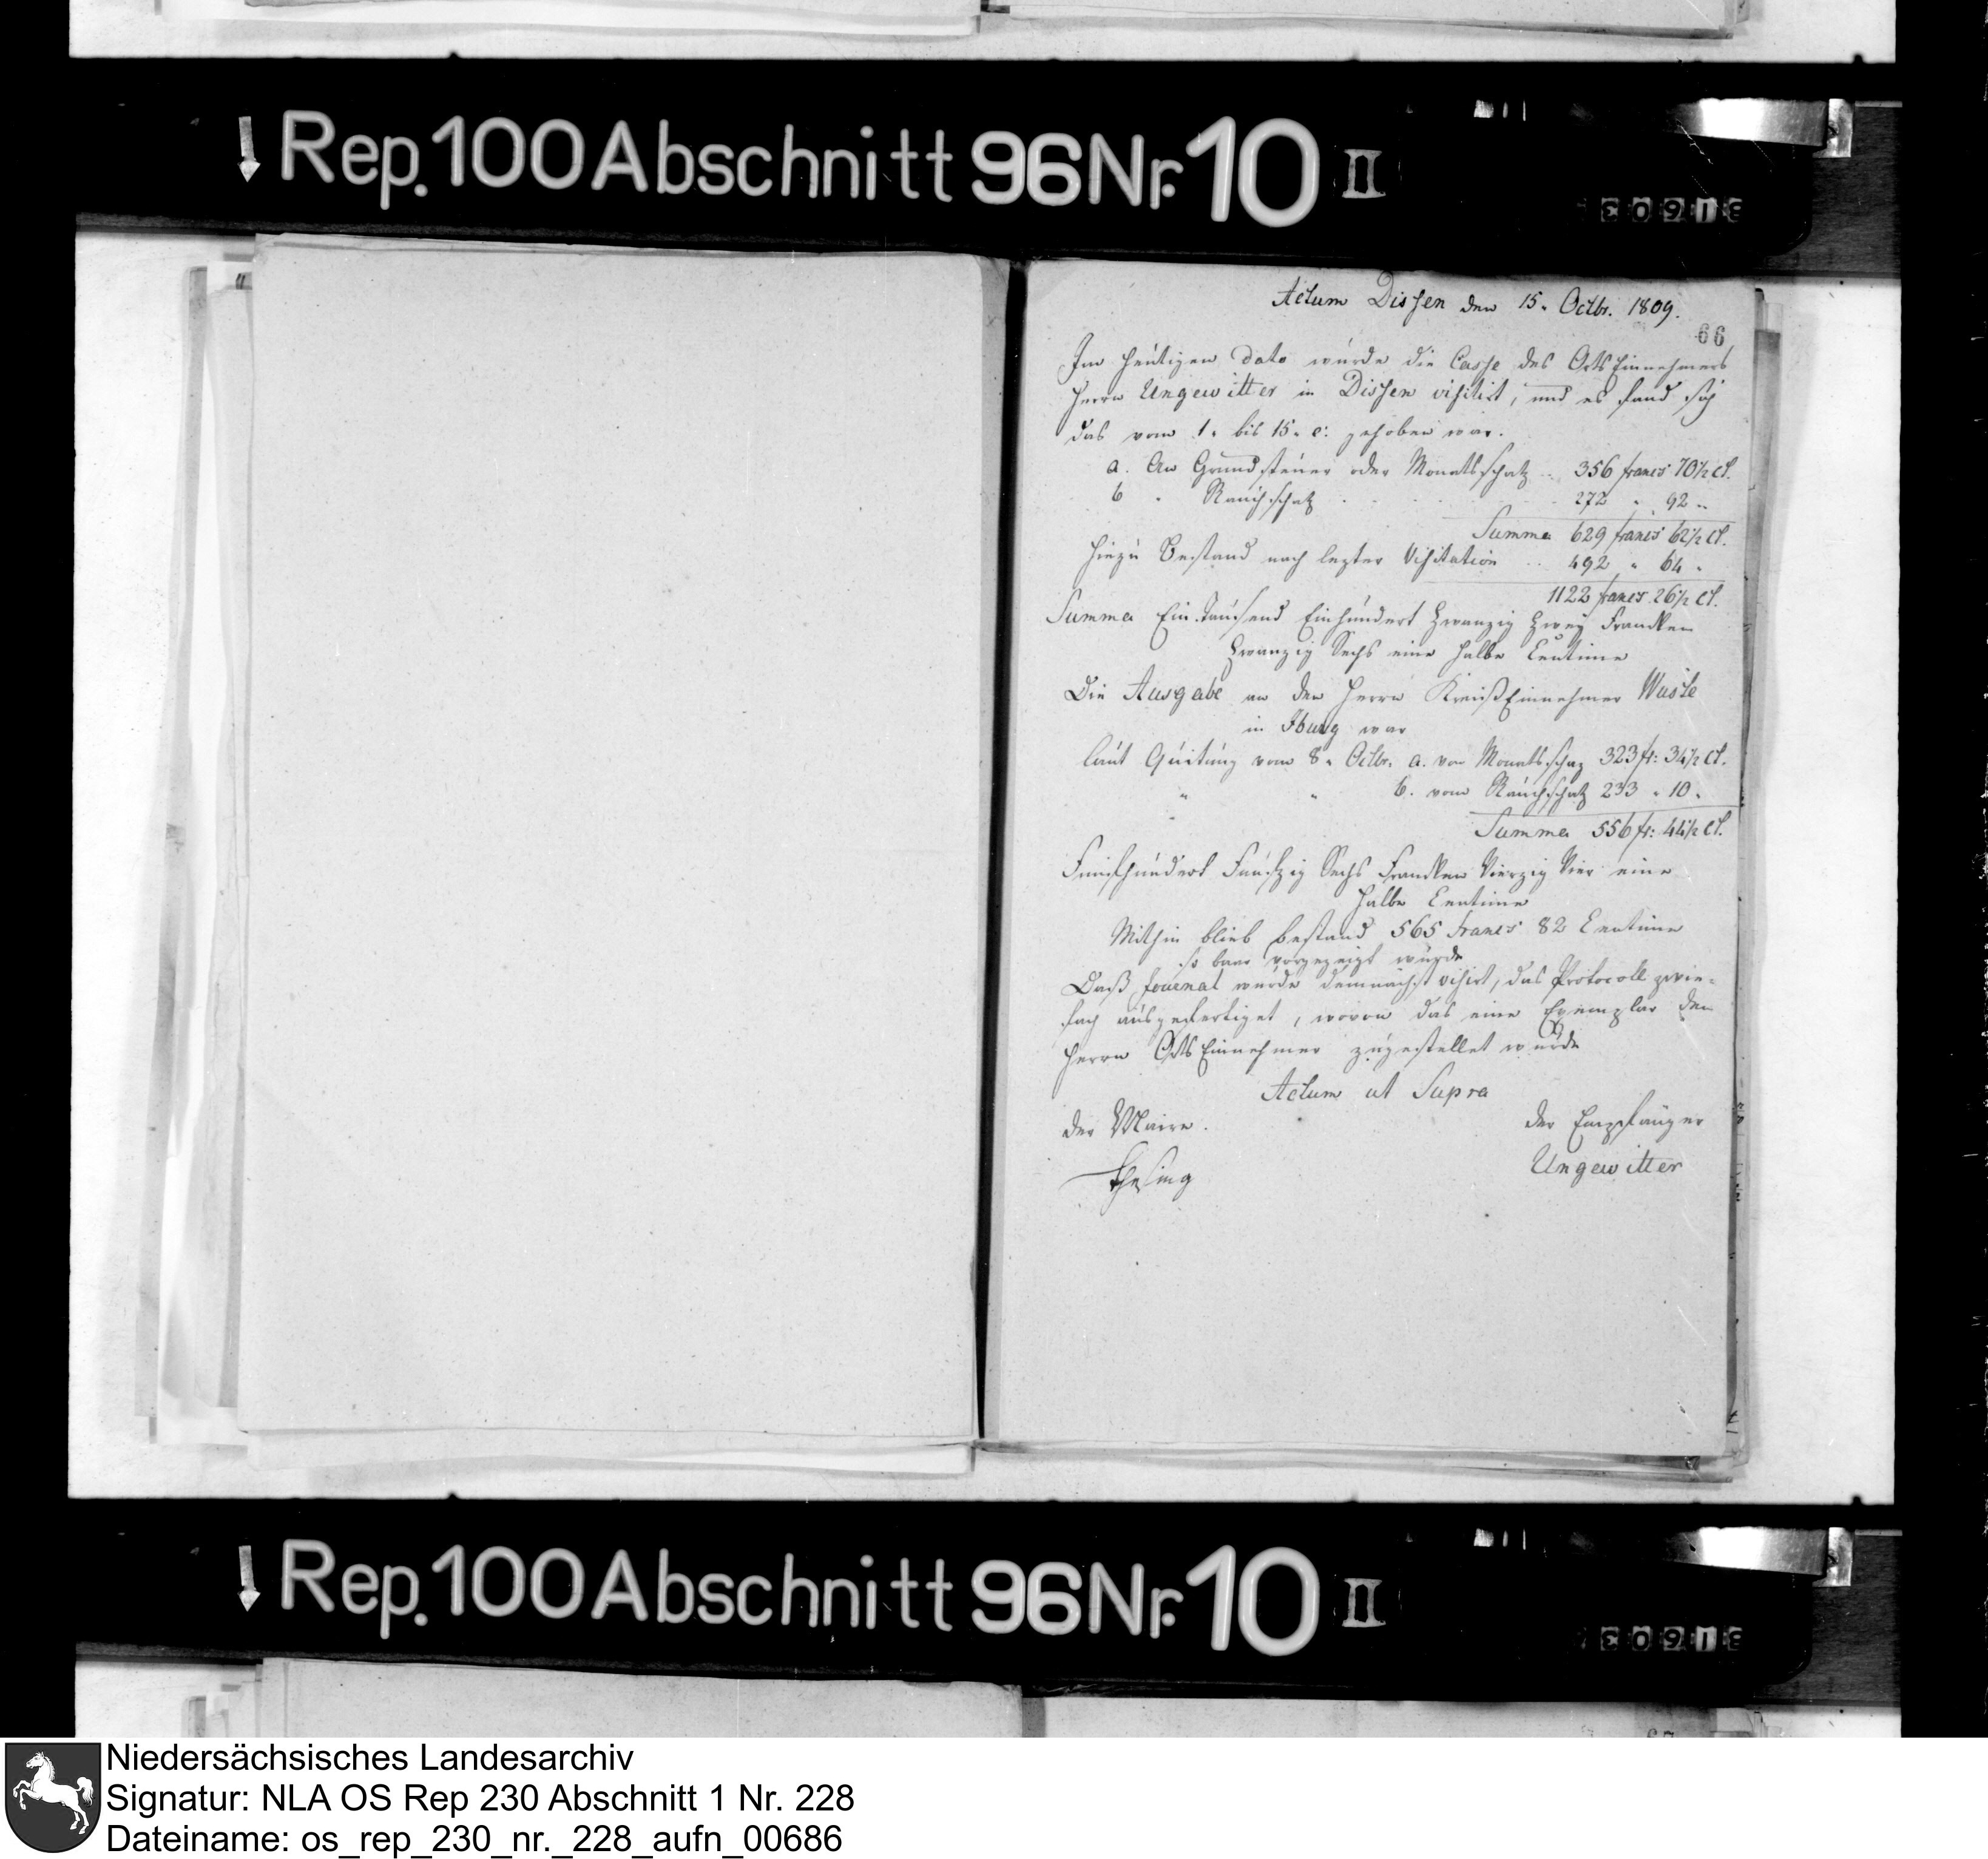 Rep. 100 Abschnitt 96 Nr. 10 II
Actum Dissen den 15. Octbr. 1809.
66
Im heutigen dato wurde die Casse des OrtsEinnehmers
Herrn Ungewitter in Dissen visitirt, und es fand sich
das vom 1. bis 15. c: gehoben war.
a. An Grundsteuer oder Monatsschatz .. 356 francs 70½ Ct.
b " Rauchschatz . . . . . 272 " 92 "
Summa 629 francs 62½ Ct.
Hiezu Bestand nach lezter Visitation .. 492 " 64 "
1122 francs 26½ Ct.
Summa Ein Tausend Einhundert Zwanzig Zwey Francken
Zwanzig Sechs eine halbe Centime
Die Ausgabe an den Herrn KreißEinnehmer Wuste
in Iburg war
laut Quitung vom 8. Octbr. a. von Monatsschaz 323 fr: 34½ Ct.
" " b. vom Rauchschatz 233 " 10 "
Summa 556 fr: 44½ Ct.
Funfhundert Funfzig Sechs Francken Vierzig Vier eine
halbe Centime
Mithin blieb bestand 565 francs 82 Centime
so baar vorgezeigt wurde
Daß Journal wurde demnächst visirt, das Protocoll zwie-
fach ausgefertiget, wovon das eine Exemplar dem
Herrn OrtsEinnehmer zugestellet wurde
Actum ut Supra
der Maire.
der Empfänger
Thesing
Ungewitter
Rep. 100 Abschnitt 96 Nr. 10 II
Niedersächsisches Landesarchiv
Signatur: NLA OS Rep 230 Abschnitt 1 Nr. 228
Dateiname: os_rep_230_nr._228_aufn_00686